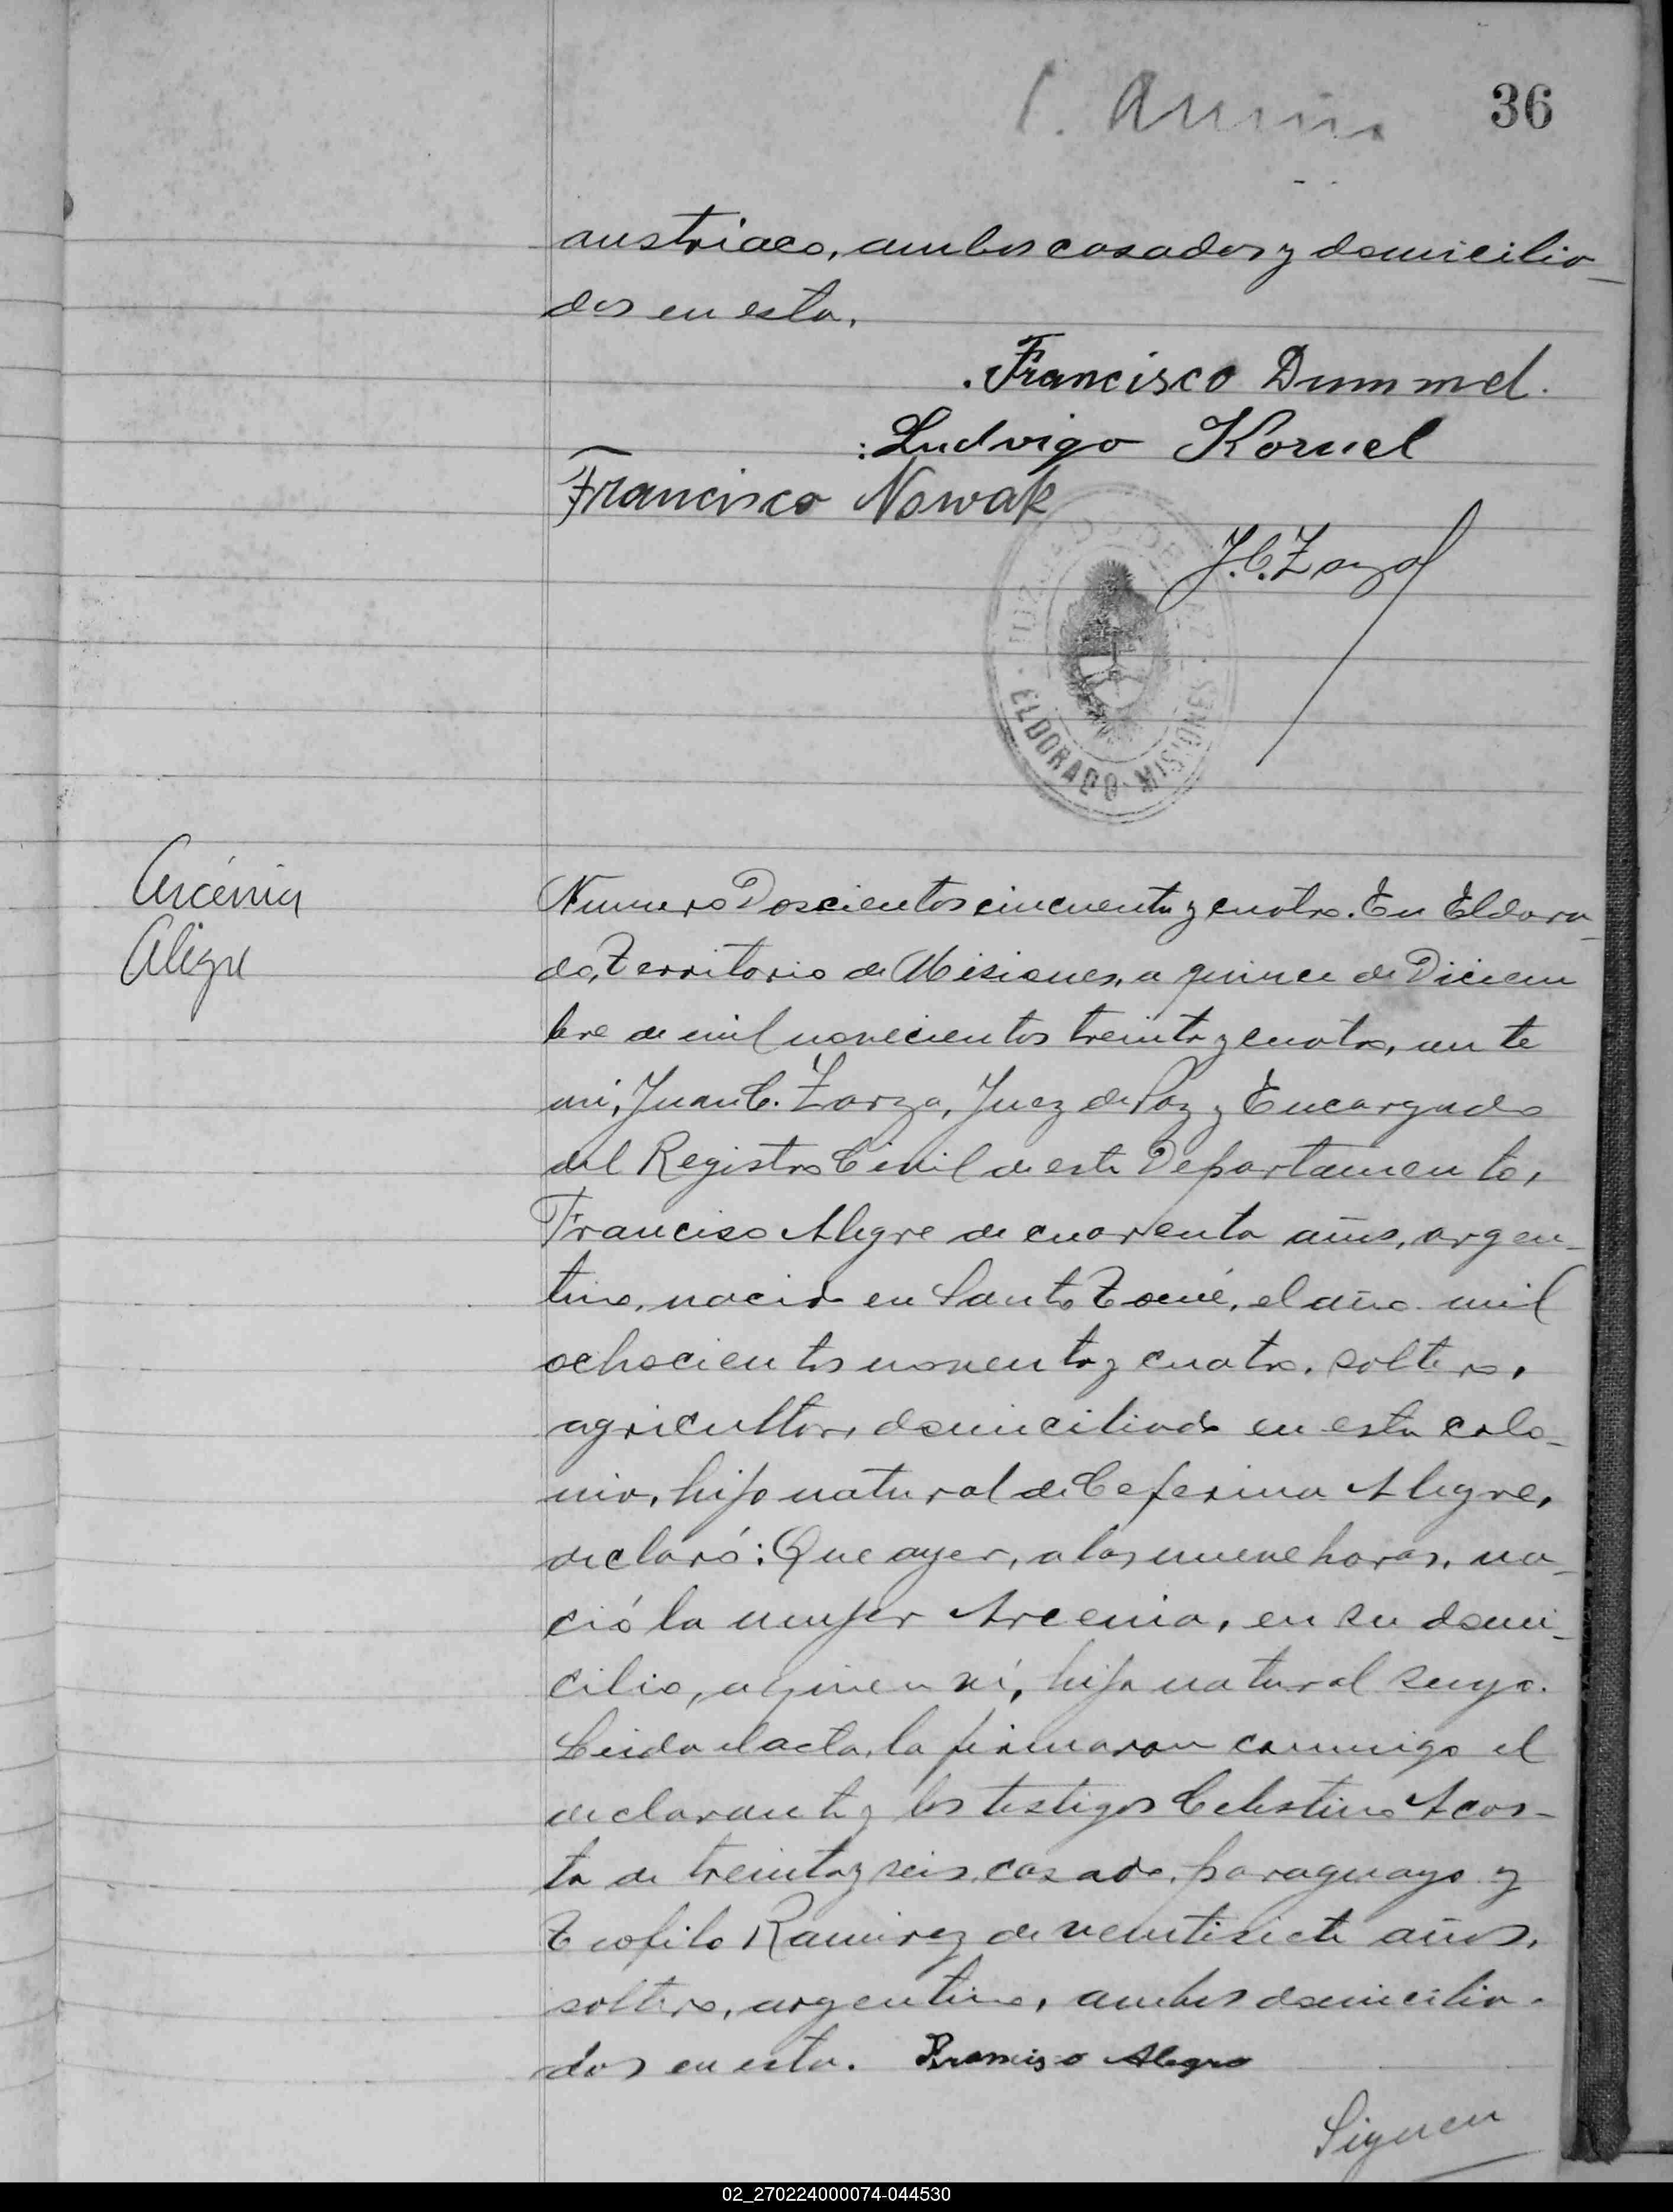 36
austriaco, ambos casados y domicilia-
dos en esta.
Francisco Dummel.
Ludvigo Kornel
Francisco Nowak
J.C. Zarza
JUZGADO DE PAZ
ELDORADO - MISIONES
Arcénia
Alegre
Numero Doscientos cincuenta y cuatro. En Eldora-
do, Territorio de Misiones, a quince de Diciem
bre de mil novecientos treinta y cuatro, ante
mi, Juan C. Zarza, Juez de Paz y Encargado
del Registro Civil de este Departamento,
Franciso Alegre de cuarenta años, argen-
tino, nacido en Santo Tomé, el año mil
ochocientos noventa y cuatro, soltero,
agricultor, domiciliado en esta colo-
nia, hijo natural de Ceferina Alegre,
declaró: Que ayer, a las nueve horas, na-
ció la mujer Arcenia, en su domi-
cilio, a quien ví, hija natural suya.
Leida el acta, la firmaron conmigo el
declarante y los testigos Celestino Acos-
ta de treinta y seis, casado, paraguayo y
Teofilo Ramirez de veintisiete años,
soltero, argentino, ambos domicilia-
dos en esta. Fransiso Alegre
Siguen
02_270224000074-044530